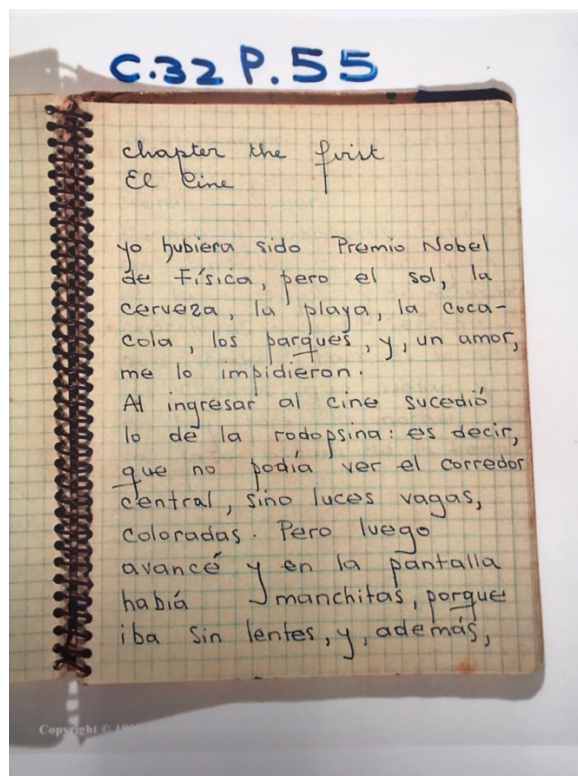 C.32 P.55
chapter the first
El Cine
yo hubiera sido Premio Nobel
de Física, pero el sol, la
cerveza, la playa, la coca-
cola, los parques, y, un amor,
me lo impidieron.
Al ingresar al cine sucedió
lo de la rodopsina: es decir,
que no podía ver el corredor
central, sino luces vagas,
coloradas. Pero luego
avancé y en la pantalla
había manchitas, porque
iba sin lentes, y, además,
Copyright ©